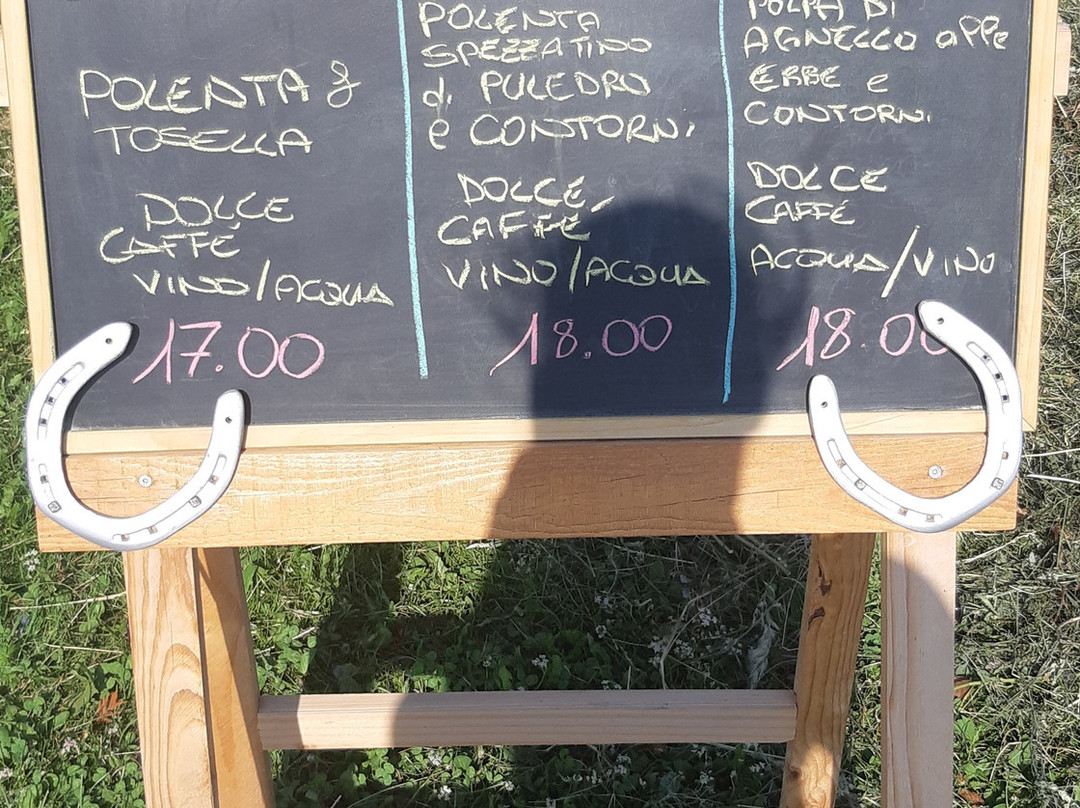 POLENTA &
TOSELLA
DOLCE
CAFFÉ
VINO/ACQUA
17.00
POLENTA
SPEZZATINO
di PULEDRO
e CONTORNI
DOLCE
CAFFÉ
VINO/ACQUA
18.00
POLPA DI
AGNELLO alle
ERBE e
CONTORNI
DOLCE
CAFFÉ
ACQUA/VINO
18.00